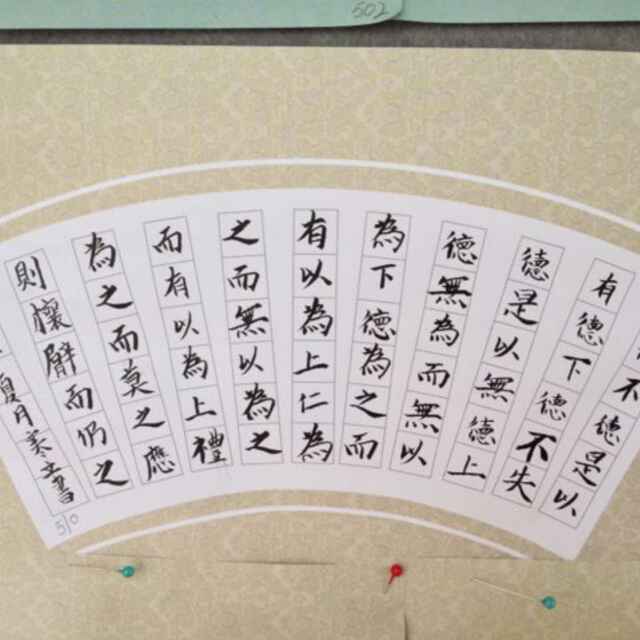 502
不德是以
有德下德不失
德是以無德上
德無為而無以
為下德為之而
有以為上仁為
之而無以為之
而有以為上禮
為之而莫之應
則懷臂而仍之
夏月美玉書
510